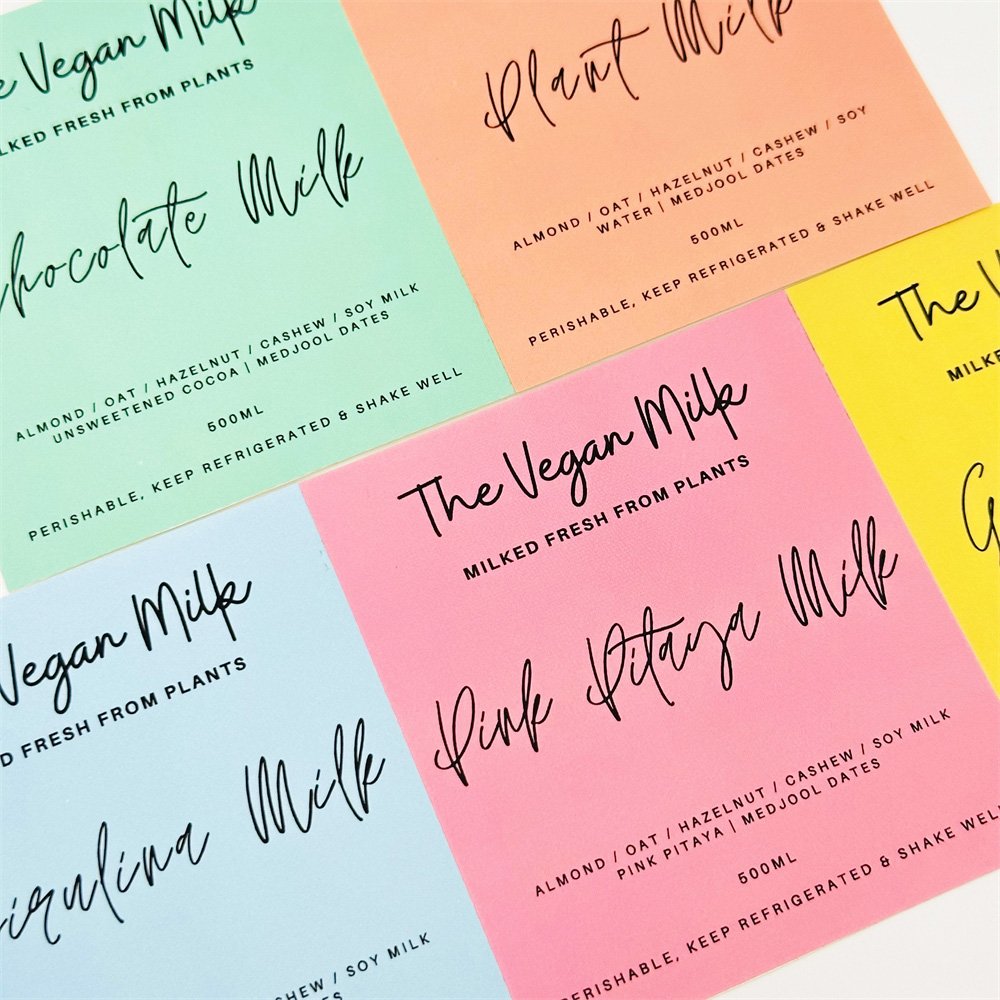 Vegan Milk
MILKED FRESH FROM PLANTS
Chocolate Milk
ALMOND / OAT / HAZELNUT / CASHEW / SOY MILK
UNSWEETENED COCOA | MEDJOOL DATES
500ML
PERISHABLE, KEEP REFRIGERATED & SHAKE WELL
Plant Milk
ALMOND / OAT / HAZELNUT / CASHEW / SOY
WATER | MEDJOOL DATES
500ML
PERISHABLE, KEEP REFRIGERATED & SHAKE WELL
Vegan Milk
FRESH FROM PLANTS
Spirulina Milk
SOY MILK
The Vegan Milk
MILKED FRESH FROM PLANTS
Pink Pitaya Milk
ALMOND / OAT / HAZELNUT / CASHEW / SOY MILK
PINK PITAYA | MEDJOOL DATES
500ML
PERISHABLE, KEEP REFRIGERATED & SHAKE WELL
The